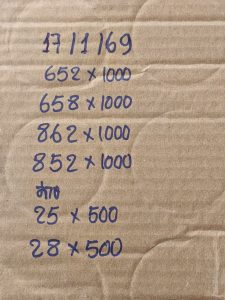 17/1/69
652 × 1000
658 × 1000
862 × 1000
852 × 1000
25 × 500
28 × 500